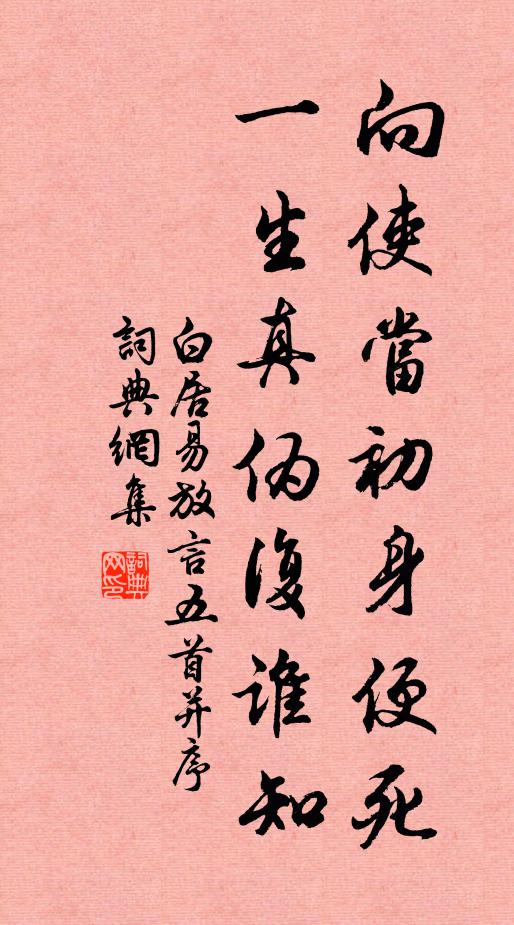 向使當初身便死
一生真偽復誰知
白居易放言五首并序
詞典網集
詞典网印